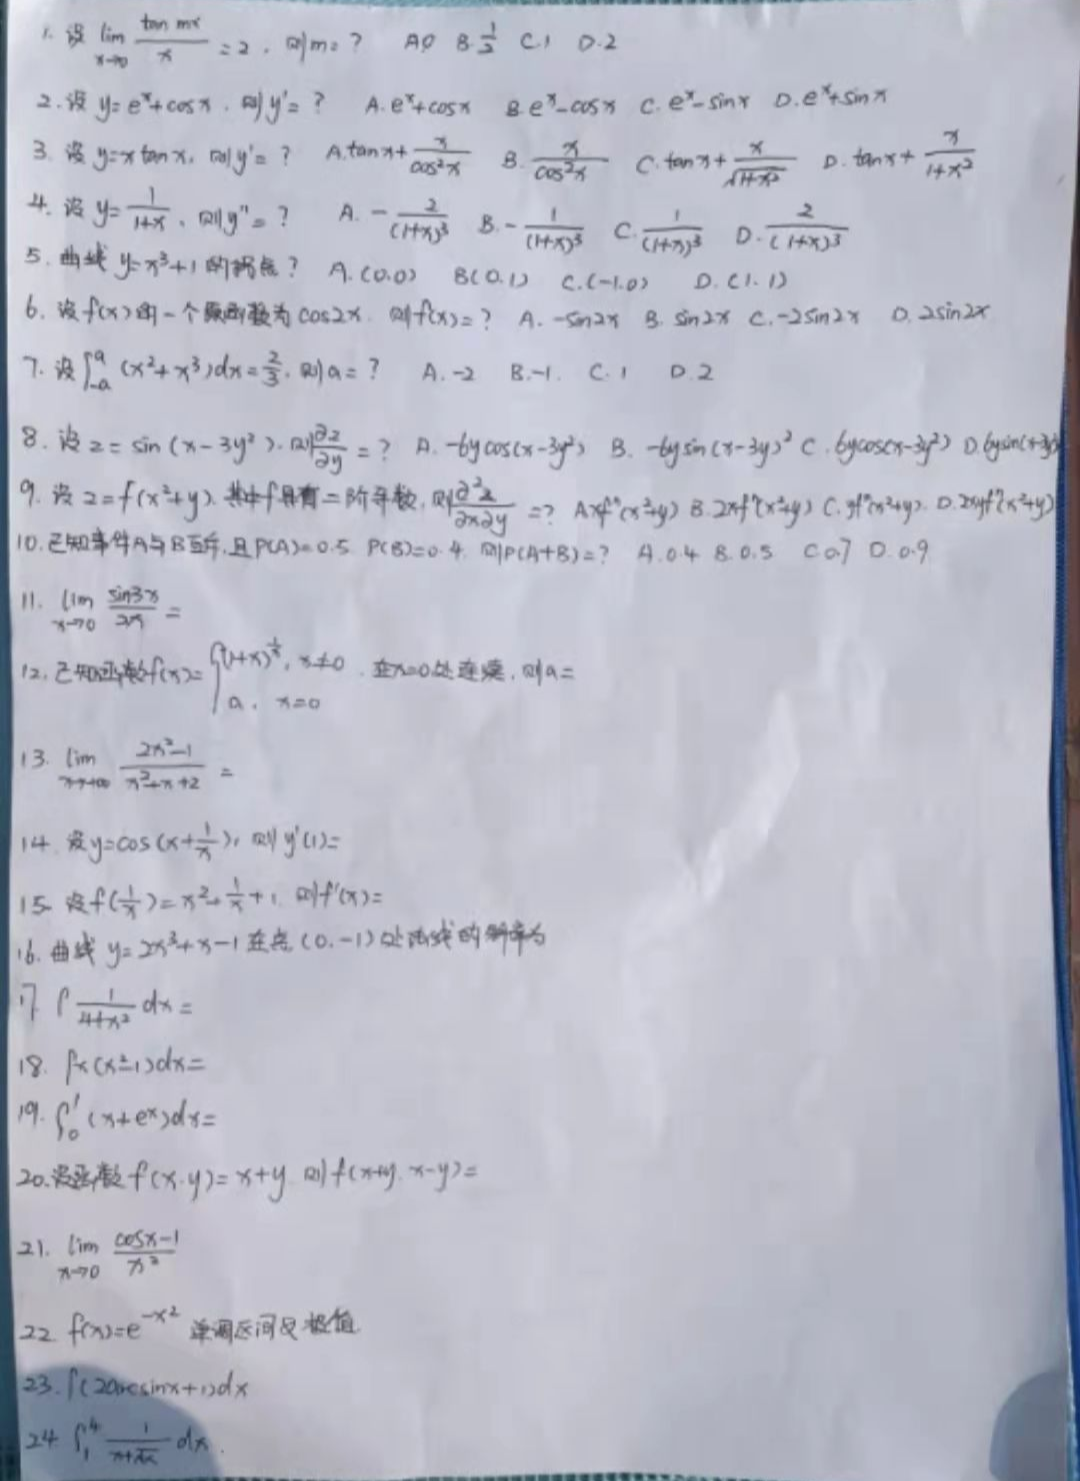 1. 设 lim x→0 tan mx / x = 2, 则m=? A.0 B.1/2 C.1 D.2
2.设 y=e^x+cosx. 则y'=? A.e^x+cosx B.e^x-cosx C.e^x-sinx D.e^x+sinx
3. 设 y=x tanx, 则y'=? A.tanx+x/cos²x B.x/cos²x C.tanx+x/√(1+x²) D.tanx+x/(1+x²)
4.设 y=1/(1+x), 则y''=? A.-2/(1+x)³ B.-1/(1+x)³ C.1/(1+x)³ D.2/(1+x)³
5.曲线 y=x³+1 的拐点? A.(0.0) B(0.1) C.(-1.0) D.(1.1)
6.设f(x)的一个原函数为cos2x. 则f(x)=? A.-sin2x B.sin2x C.-2sin2x D.2sin2x
7.设∫_{-a}^{a} (x²+x³)dx=2/3, 则a=? A.-2 B.-1. C.1 D.2
8.设 z=sin(x-3y²). 则∂z/∂y=? A.-6ycos(x-3y²) B.-6ysin(x-3y)² C.6ycos(x-3y²) D.6ysin(x-3y
9.设 z=f(x²+y). 其中f具有二阶导数, 则∂²z/∂x∂y=? A.xf''(x²+y) B.2xf''(x²+y) C.yf''(x²+y). D.2xyf''(x²+y)
10.已知事件A与B互斥,且P(A)=0.5. P(B)=0.4. 则P(A+B)=? A.0.4 B.0.5 C.0.7 D.0.9
11. lim x→0 sin3x/2x =
12.已知函数f(x)={(1+x)^{1/x}, x≠0 . 在x=0处连续, 则a=
a, x=0
13. lim x→∞ (2x²-1)/(x²+x+2) =
14.设y=cos(x+1/x), 则y'(1)=
15.设f(1/x)=x²+1/x+1, 则f'(x)=
16.曲线 y=2x³+x-1在点(0.-1)处法线的斜率为
17. ∫1/(4+x²) dx=
18. ∫x(x²-1)dx=
19. ∫_0^1 (x+e^x)dx=
20.设函数f(x.y)=x+y. 则f(x+y. x-y)=
21. lim x→0 (cosx-1)/x²
22 f(x)=e^{-x²} 单调区间及极值
23. ∫(2arcsinx+1)dx
24 ∫_1^4 1/(x+√x) dx.